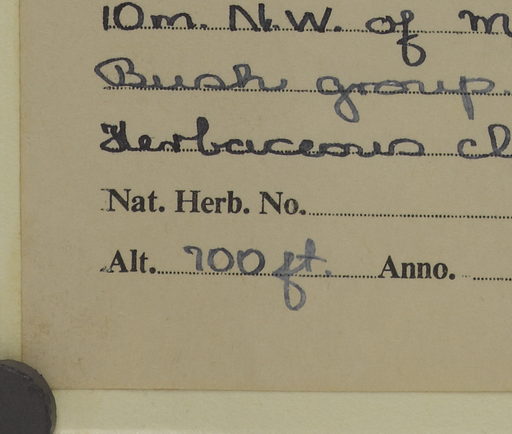 10m. N.W. of
Bush group.
Herbaceous
Nat. Herb. No.
Alt. 700 ft. Anno.